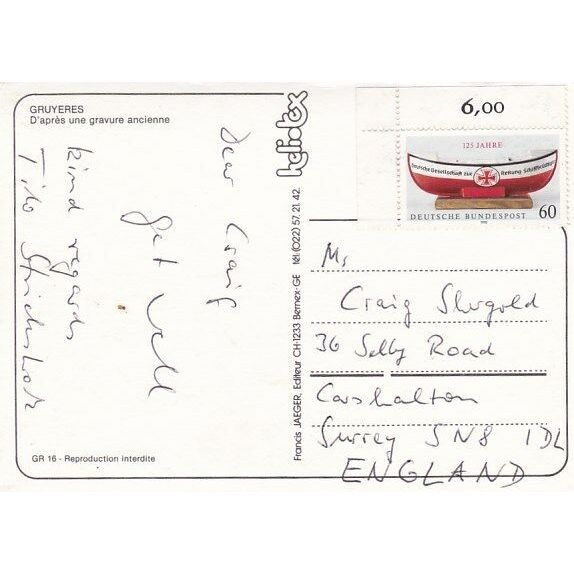 GRUYERES
D'après une gravure ancienne
heliotex
6,00
125 JAHRE
Deutsche Gesellschaft zur Rettung Schiffbrüchiger
DEUTSCHE BUNDESPOST 60
Dear Craig
Get Well
kind regards
Tito
Francis JAEGER, Editeur CH-1233 Bernex-GE tél. (022) 57 21 42
Mr
Craig Shergold
36 Selby Road
Carshalton
Surrey SN8 1DL
ENGLAND
GR 16 - Reproduction interdite